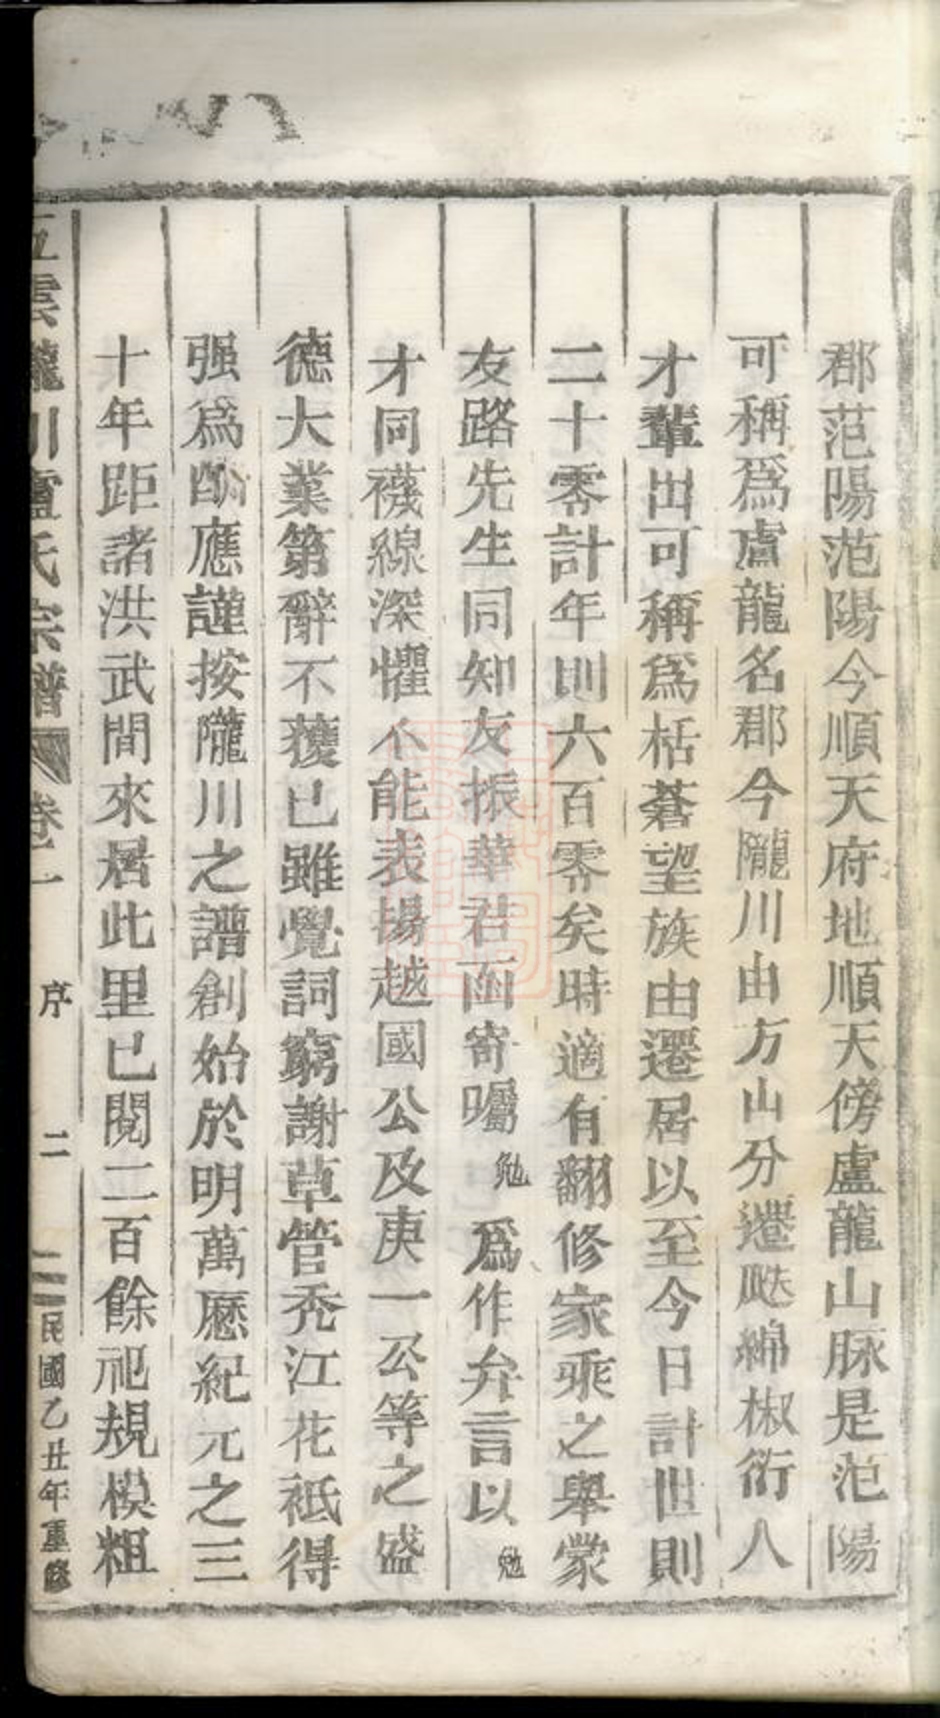 郡范陽范陽今順天府地順天傍盧龍山脉是范陽
可稱爲盧龍名郡今隴川由方山分遷瓞綿椒衍人
才輩出可稱爲栝蒼望族由遷居以至今日計世則
二十零計年則六百零矣時適有翻修家乘之舉蒙
友路先生同知友振華君函寄囑勉爲作弁言以勉
才同襪線深懼不能表揚越國公及庚一公等之盛
德大業第辭不獲已雖覺詞窮謝草管禿江花祗得
强爲酬應謹按隴川之譜創始於明萬厯紀元之三
十年距諸洪武間來居此里已閱二百餘祀規模粗
五雲隴川盧氏宗譜 卷一 序 二 民國乙丑年重修